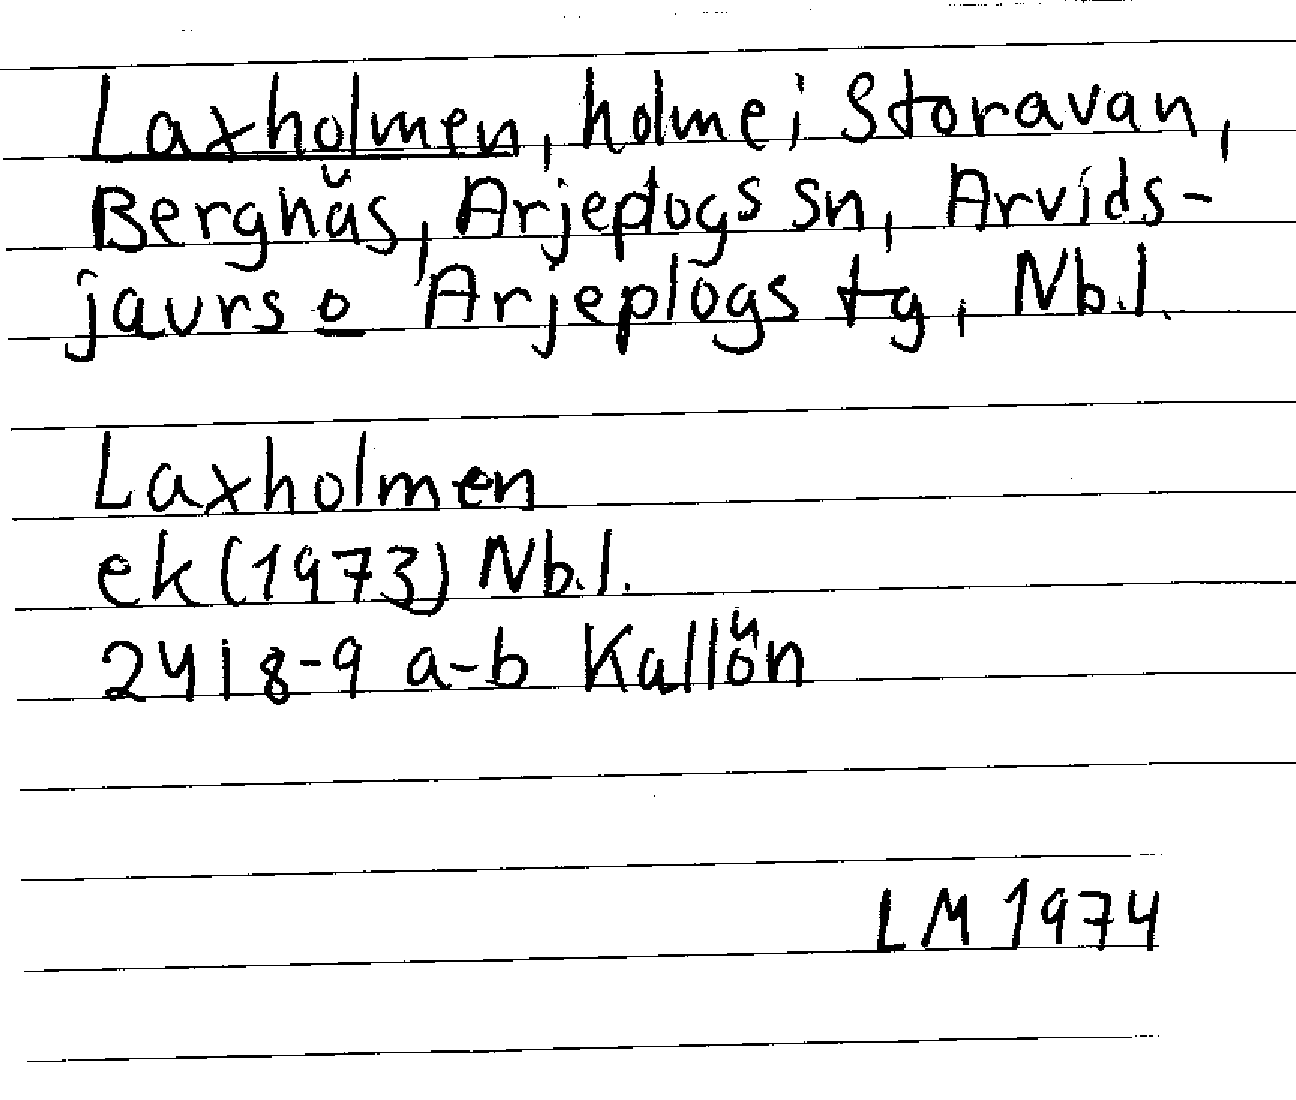 Laxholmen, holme i Storavan,
Bergnäs, Arjeplogs sn, Arvids-
jaurs o Arjeplogs tg, Nb.l.
Laxholmen
ek (1973) Nb.l.
2418-9 a-b Kallön
LM 1974